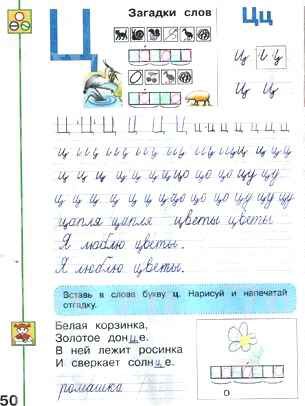 Загадки слов
Ц
Цц
ц ц ц
ц ц
Ц Ц Ц Ц Ц Ц Ц Ц Ц Ц Ц Ц
цапля цапля цветы цветы
Я люблю цветы.
Я люблю цветы.
Вставь в слова букву ц. Нарисуй и напечатай
отгадку.
Белая корзинка,
Золотое донце.
В ней лежит росинка
И сверкает солнце.
ромашка
о
50